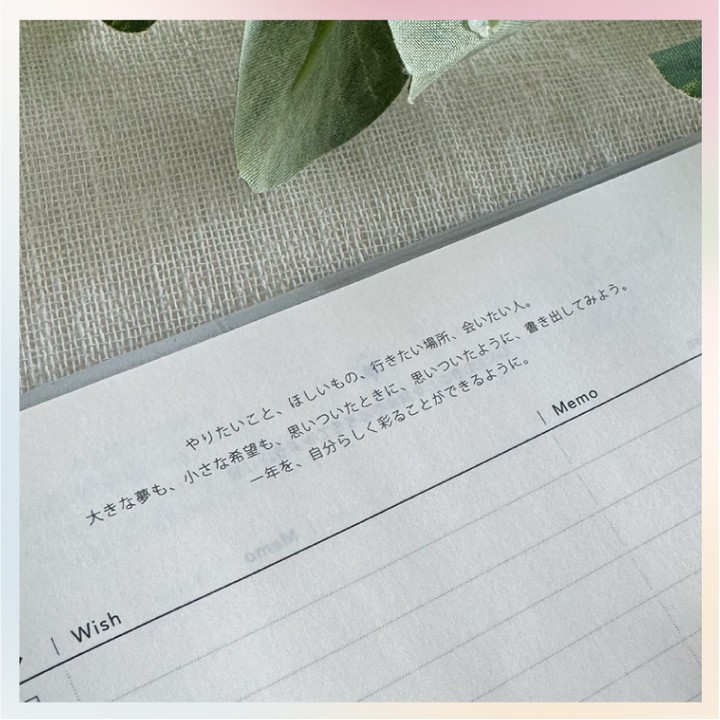 やりたいこと、ほしいもの、行きたい場所、会いたい人。
大きな夢も、小さな希望も、思いついたときに、思いついたように、書き出してみよう。
一年を、自分らしく彩ることができるように。
| Wish
| Memo
Memo